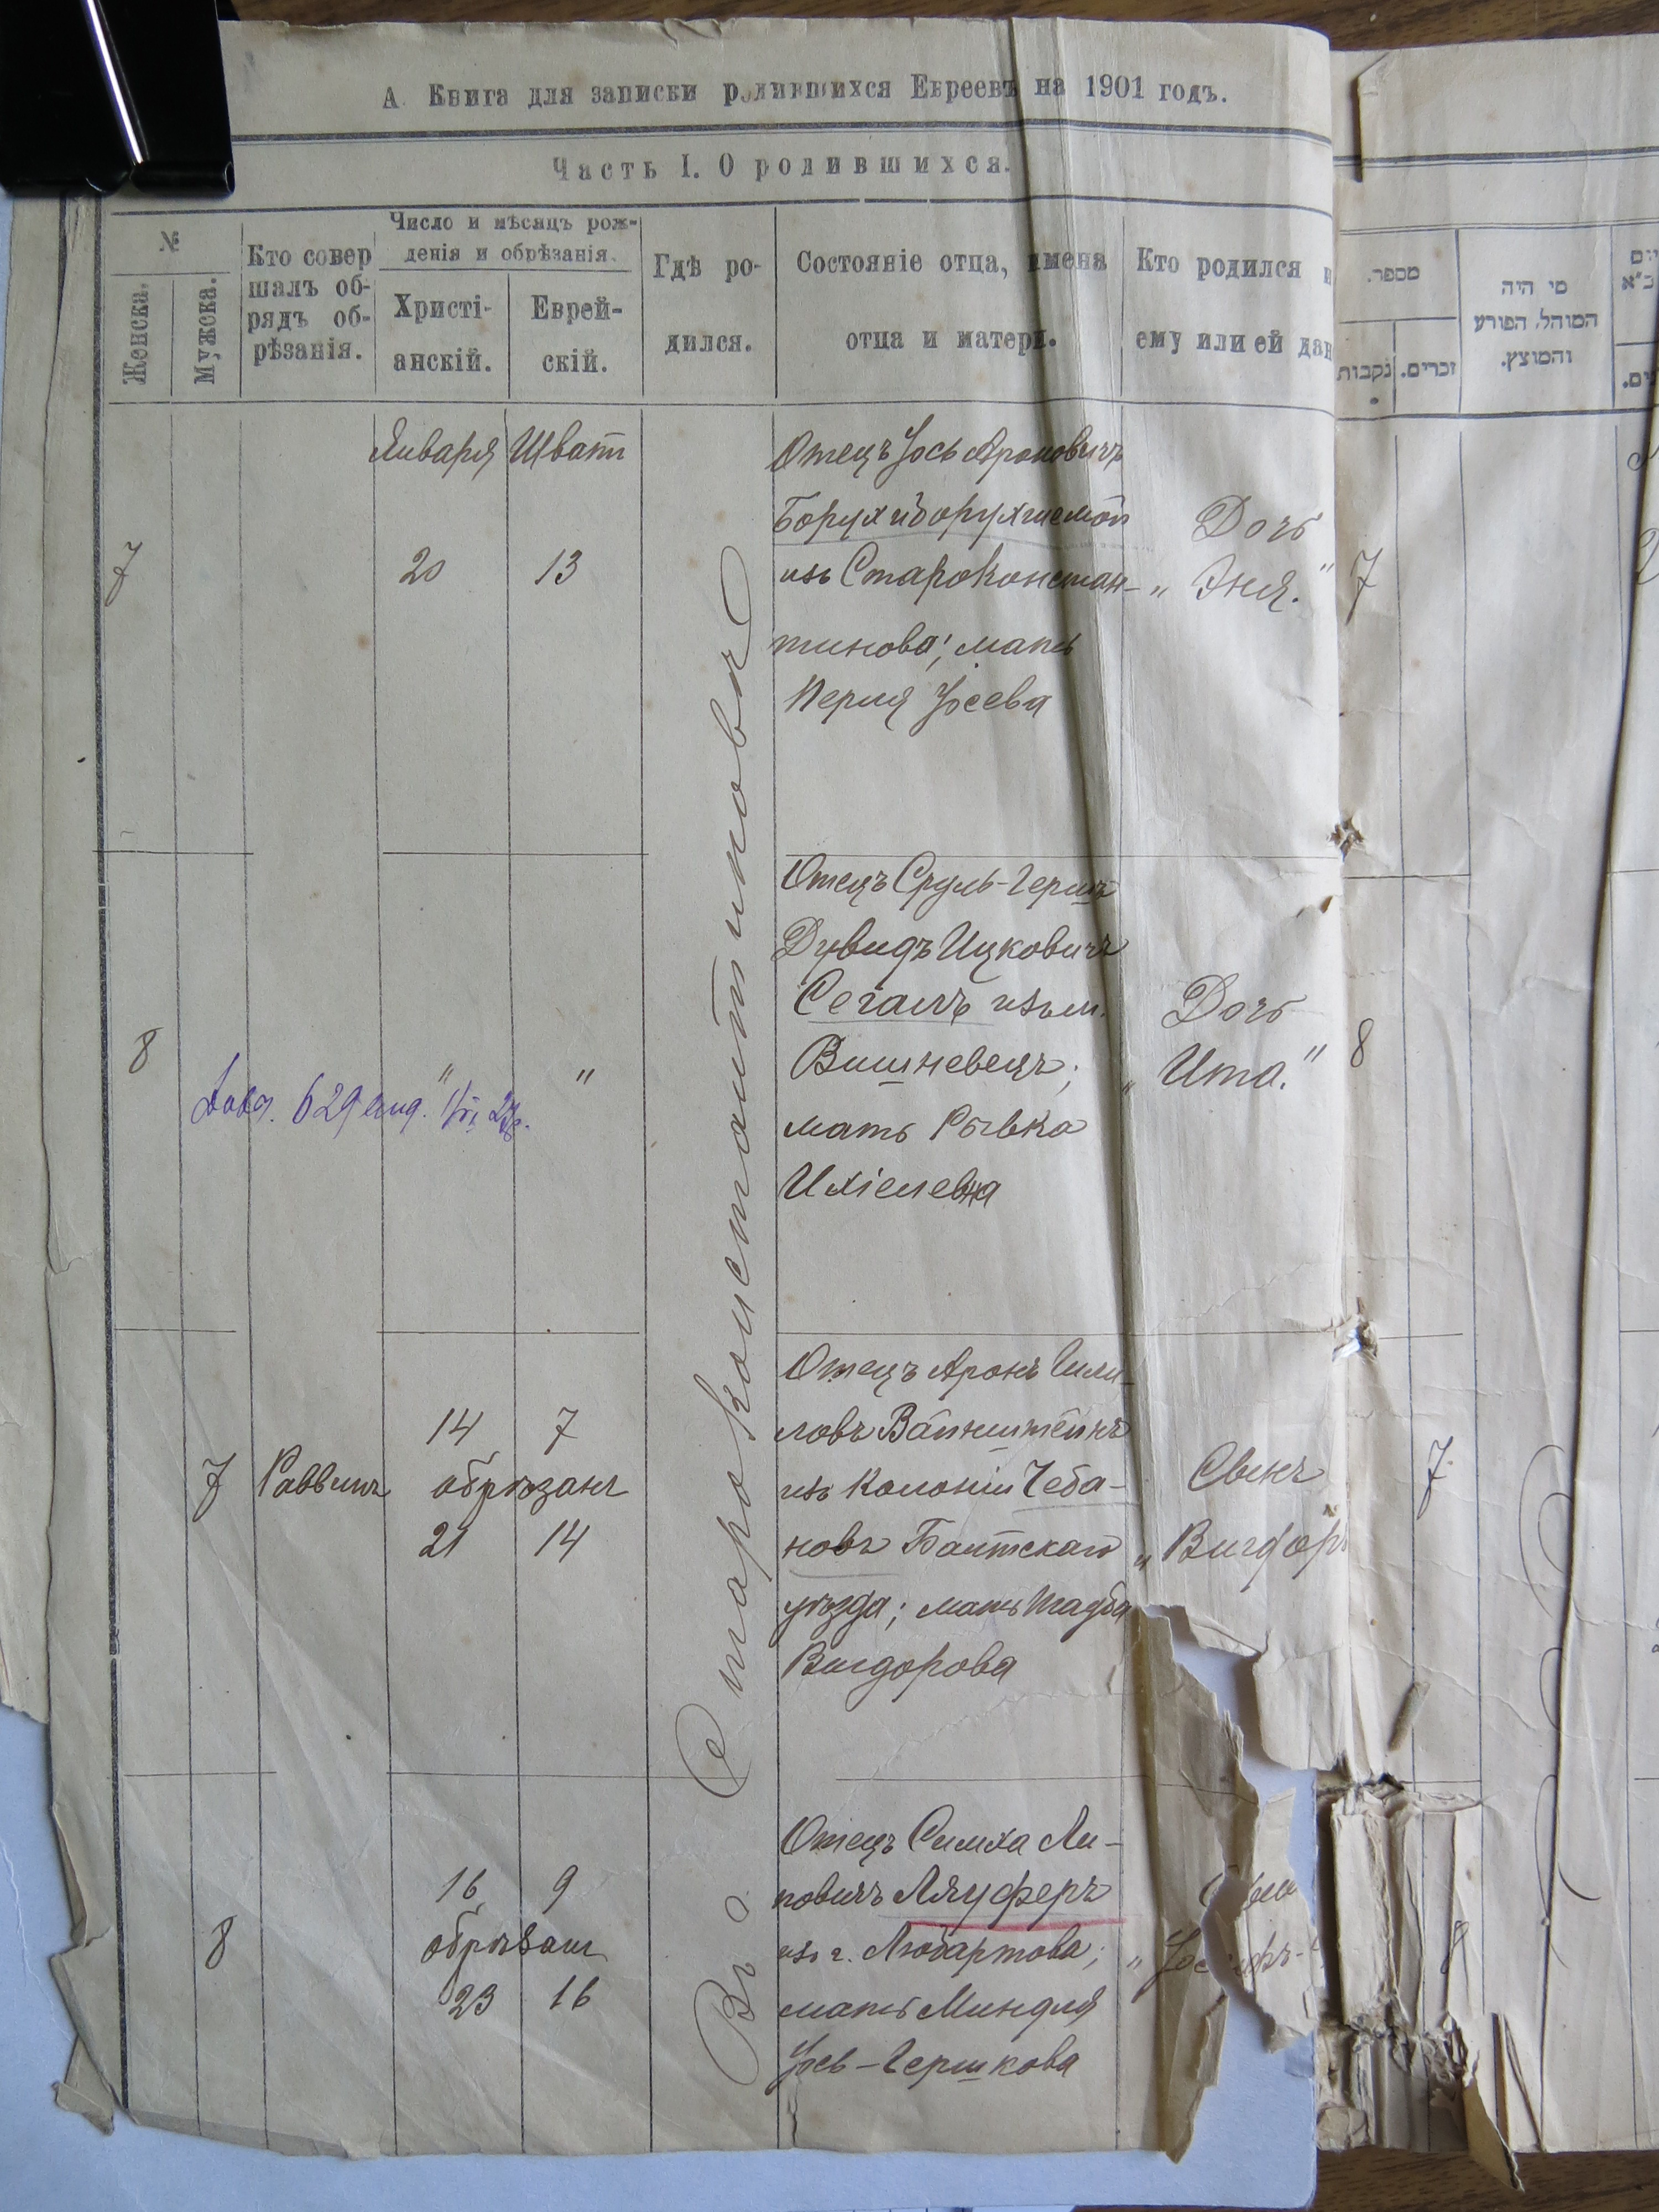 А. Книга для записки родившихся Евреевъ на 1901 годъ.
Часть I. О родившихся.
№
Женска.
Мужска.
Кто совер
шалъ об-
рядъ об-
рѣзанія.
Число и мѣсяцъ рож-
денія и обрѣзанія.
Христі-
анскій.
Еврей-
скій.
Гдѣ ро-
дился.
Состояніе отца, имена
отца и матери.
Кто родился и
ему или ей дан
מספר.
נקבות
זכרים.
מי היה
המוהל, הפורע
והמוצץ.
Января Шватъ
7
20 13
Отецъ Іось Ароновичъ
из Староконстан-
тинова; мать
Перля Іосева
Дочь
„Эня."
7
Въ Староконстантиновѣ
8
" "
Отецъ Сруль-Гершъ
Дувидъ Ицковичъ
Сегалъ изъ м.
Вишневецъ;
мать Рывка
Ихіелевна
Дочь
„Ита."
8
7 Раввинъ
14 7
обрѣзанъ
21 14
Отецъ Аронъ Шми-
ловъ Вайнштейнъ
изъ Колоніи Чеба-
новъ Балтскаго
уѣзда; мать Тауба
Вигдорова
Сынъ
„Вигдоръ
7
8
16 9
обрѣзанъ
23 16
Отецъ Симха Ли-
повичъ Ляуферъ
изъ г. Любартова;
мать Миндля
Іось-Гершкова
8